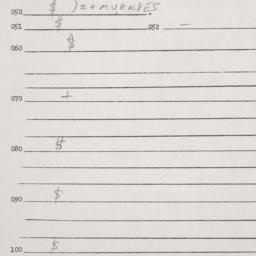 050 $ )Z+MURKPES
051 $ 052 —
060 $
070 +
080 $
090 $
100 $